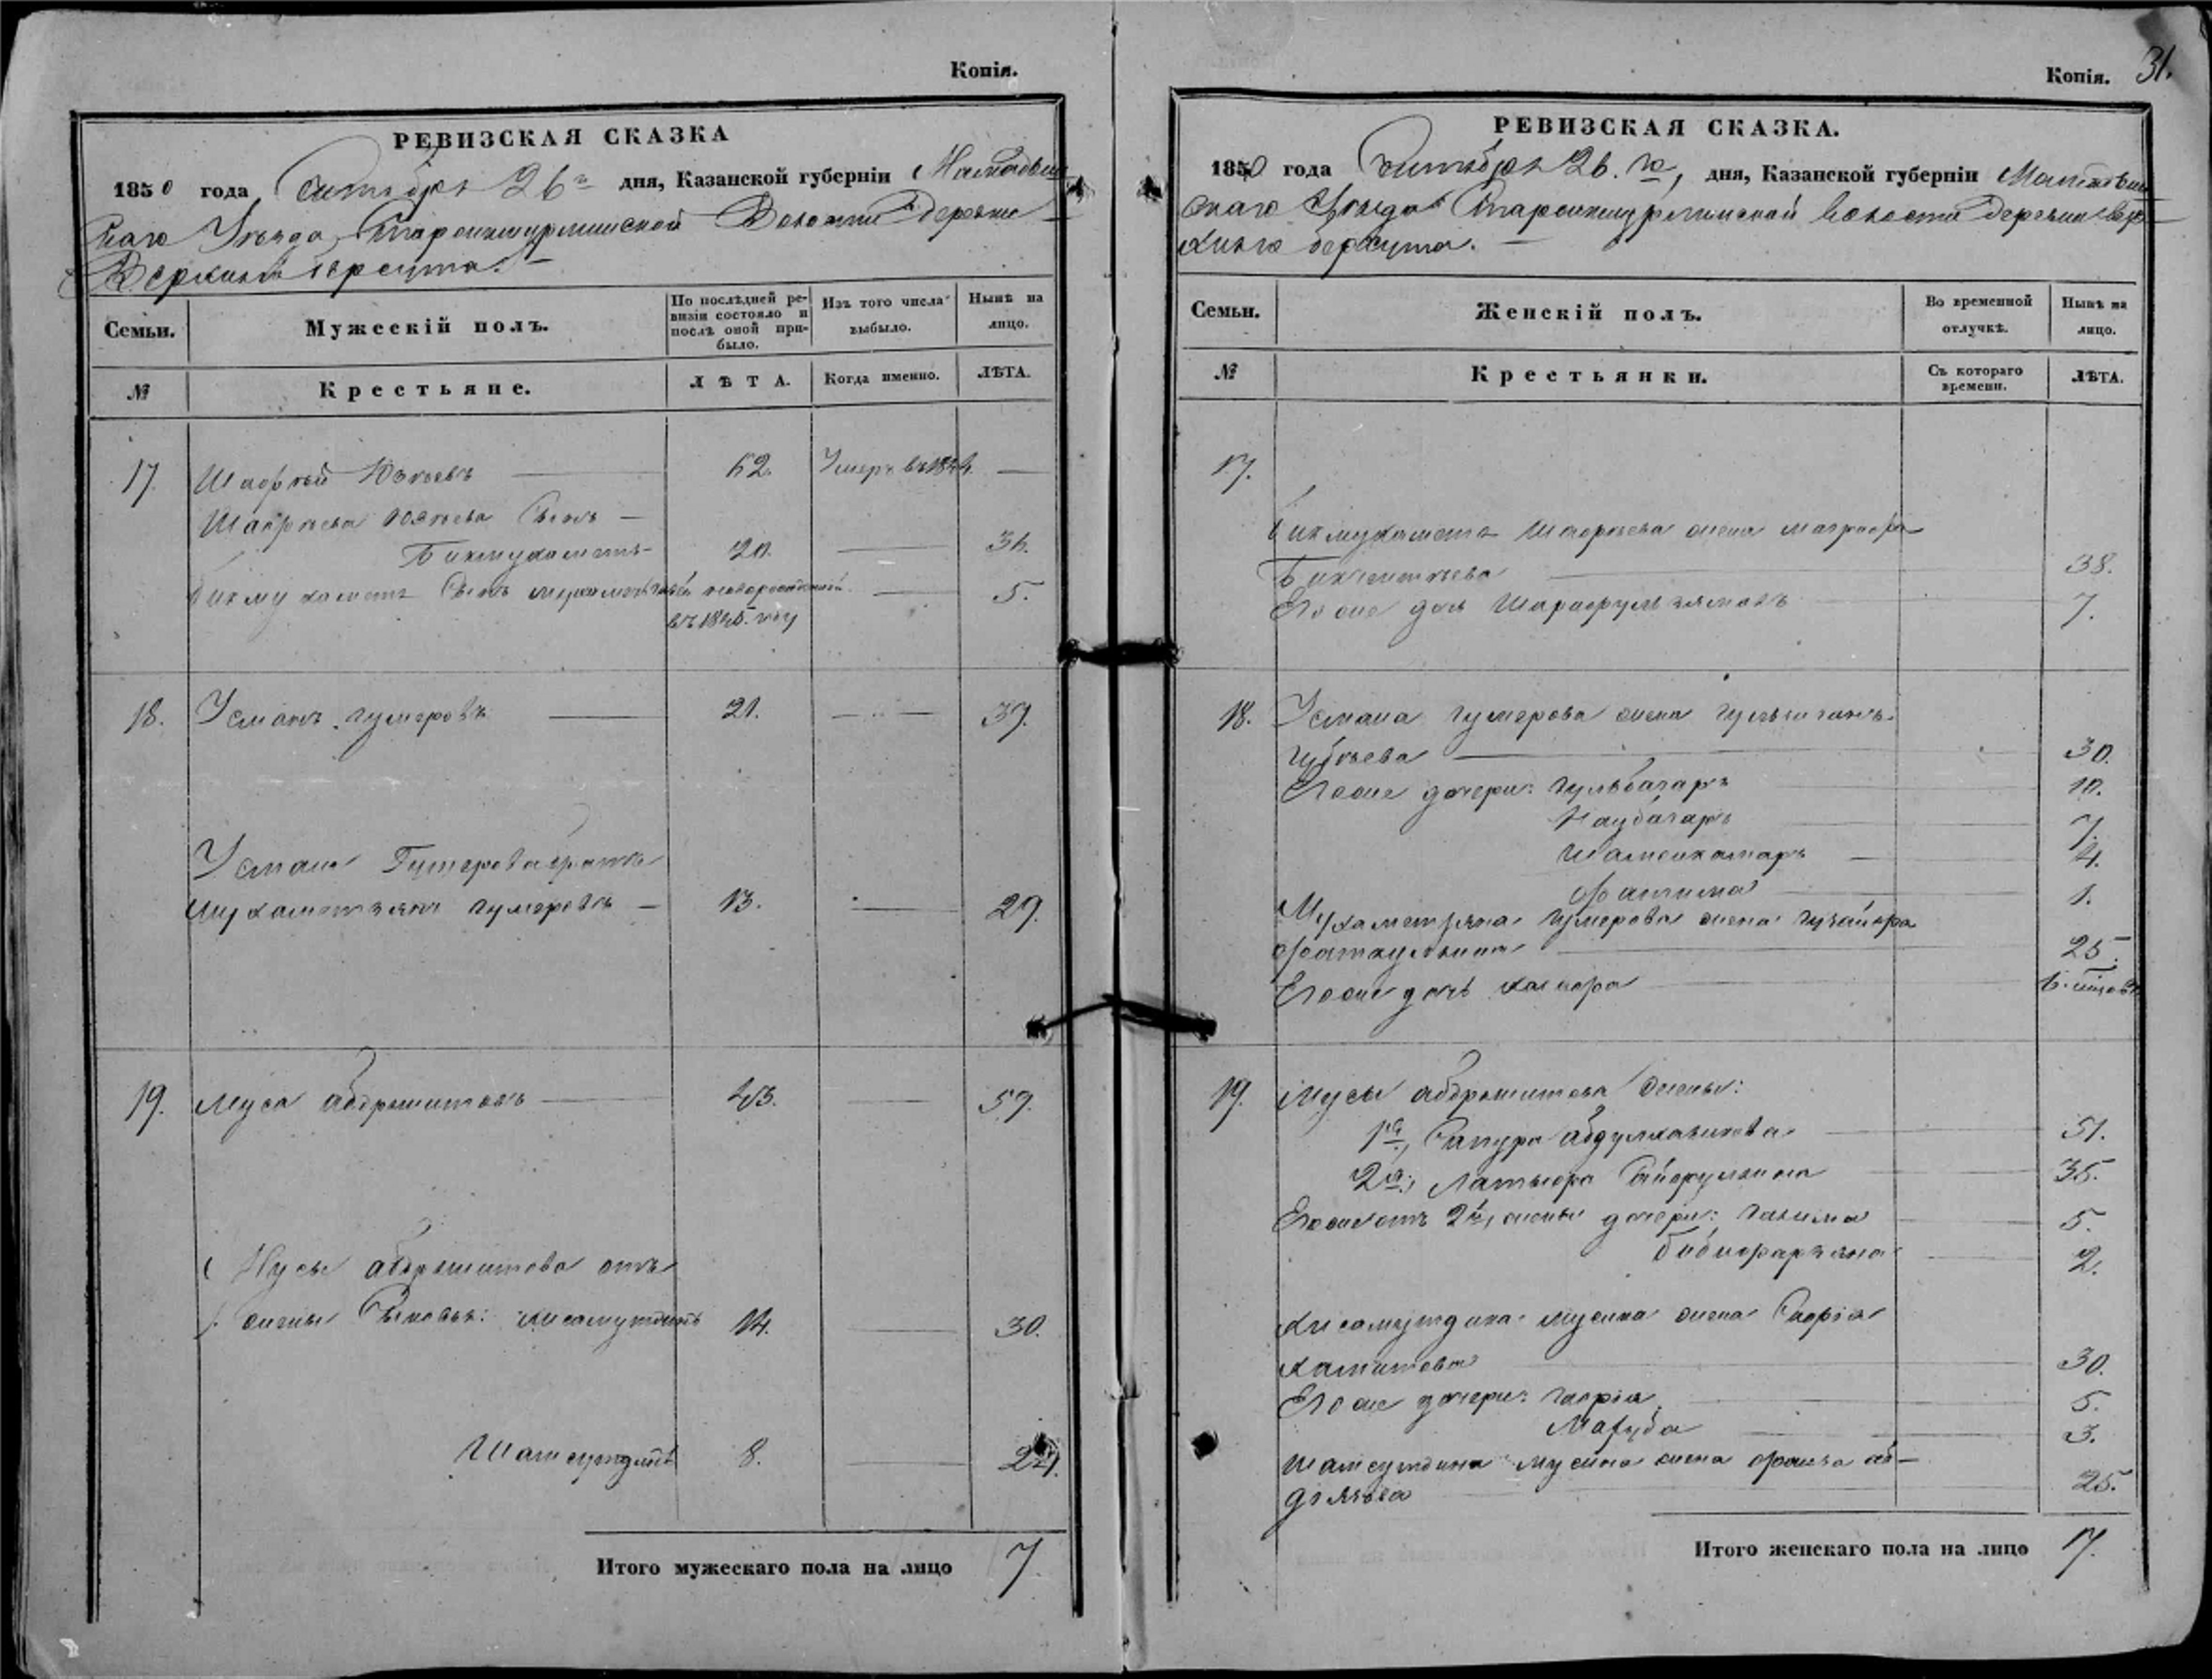 Копія.
РЕВИЗСКАЯ СКАЗКА
1850 года Октября 26го дня, Казанской губерніи Мамадыш
скаго Уѣзда, Староикшурминской Волости Деревни
Верхняго Берсута.
Семьи.
Мужескій полъ.
По послѣдней ре-
визіи состояло и
послѣ оной при-
было.
Изъ того числа
выбыло.
Нынѣ на
лицо.
№
Крестьяне.
ЛѢТА.
Когда именно.
ЛѢТА.
17. Шафѣй Юзѣевъ 62. Умеръ въ 1844. —
Шафѣева Юзѣева Сынъ —
Бикмухаметъ 20. — 36.
Бикмухаметъ Сынъ новорожденный — 5.
въ 1845. году
18. Усманъ Гумеровъ — 21. — 39.
Усмана Гумерова братъ
Мухаметзянъ Гумеровъ — 13. — 29.
19. Муса Абдрешитовъ — 43. — 59.
Мусы Абдрешитова отъ
жены Сыновья: Хисамутдинъ 14. — 30.
Шамсутдинъ 8. — 24.
Итого мужескаго пола на лицо 7
Копія. 31.
РЕВИЗСКАЯ СКАЗКА.
1850 года Октября 26. го, дня, Казанской губерніи Мамадыш
скаго Уѣзда Староикшурминской Волости Деревни Верх
няго Берсута. —
Семьи.
Женскій полъ.
Во временной
отлучкѣ.
Нынѣ на
лицо.
№
Крестьянки.
Съ котораго
времени.
ЛѢТА.
17.
Бикмухаметъ Шафѣева жена Магфора
Бикментѣева — 38.
Его же дочь Шарафулзяманъ — 7.
18. Усмана Гумерова жена
Губѣева — 30.
Его же дочери: Гульбагаръ 10.
Наубагаръ — 7.
Шамсикамаръ — 4.
Фатима — 1.
Мухаметзяна Гумерова жена
Фаткуллина — 25.
Его же дочь — 6. мѣсяц
19. Мусы Абдрешитова жены:
1я, Сапура — 51.
2я, — 35.
Его же отъ 2й, жены дочери: Галима — 5.
Бибифарзяна — 2.
Хисамутдина Мусина жена Сафія
Хамитова — 30.
Его же дочери: Гафія — 5.
Магуба — 3.
Шамсутдина Мусина жена Фаиза Аб-
— 25.
Итого женскаго пола на лицо 17.